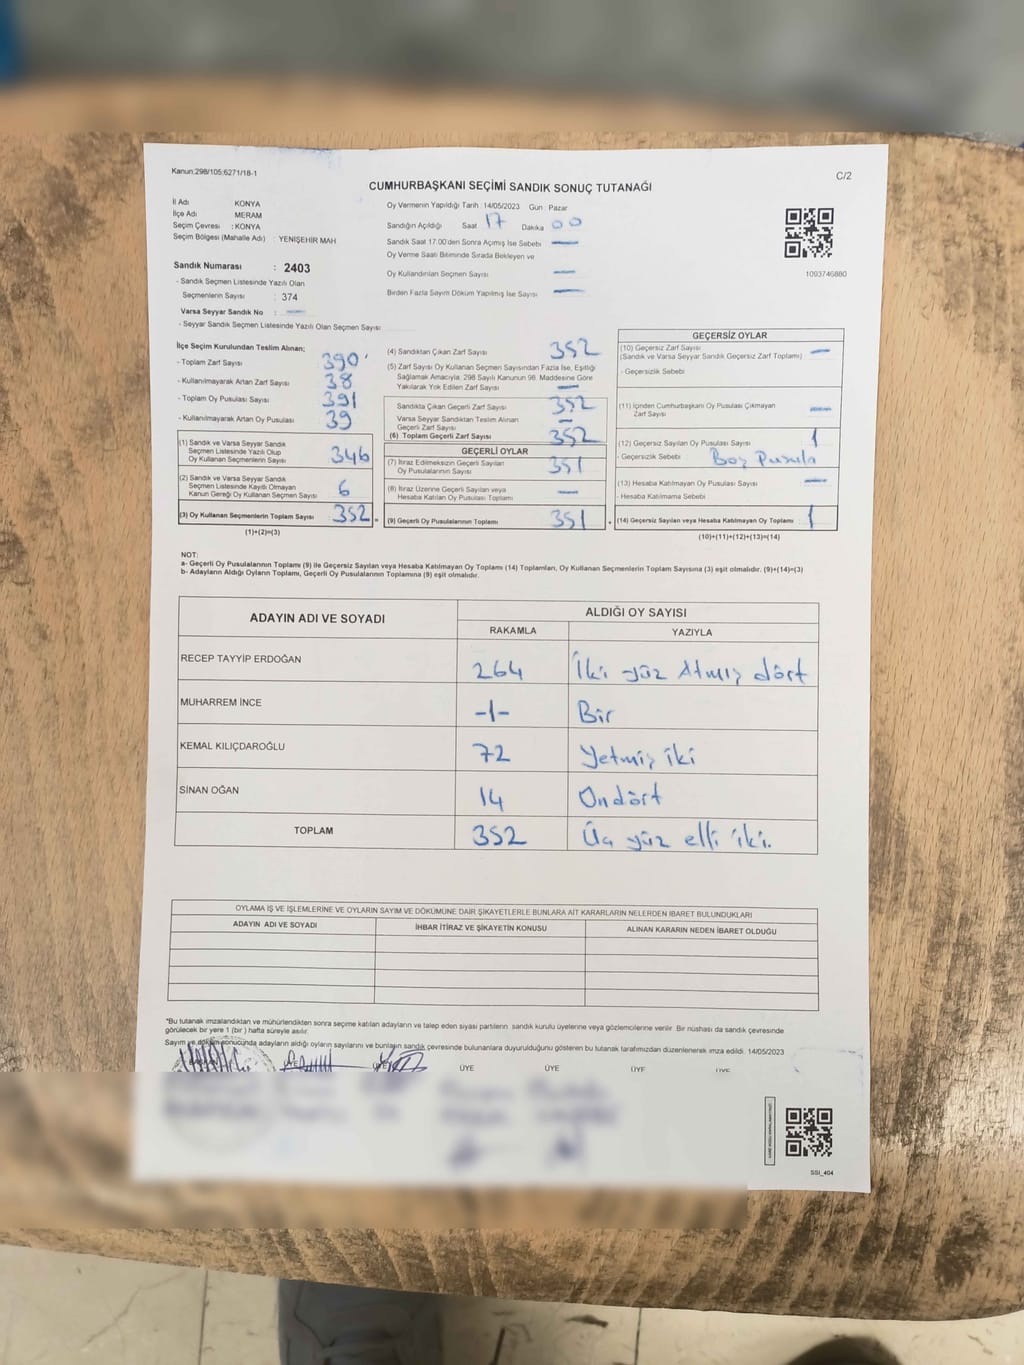 Kanun:298/105;6271/18-1
C/2
CUMHURBAŞKANI SEÇİMİ SANDIK SONUÇ TUTANAĞI
İl Adı KONYA
İlçe Adı MERAM
Seçim Çevresi : KONYA
Seçim Bölgesi (Mahalle Adı) : YENİŞEHİR MAH
Sandık Numarası : 2403
- Sandık Seçmen Listesinde Yazılı Olan
Seçmenlerin Sayısı : 374
Varsa Seyyar Sandık No : —
- Seyyar Sandık Seçmen Listesinde Yazılı Olan Seçmen Sayısı
Oy Vermenin Yapıldığı Tarih :14/05/2023 Gün Pazar
Sandığın Açıldığı Saat 17 Dakika 00
Sandık Saat 17.00'den Sonra Açımış İse Sebebi —
Oy Verme Saati Bitiminde Sırada Bekleyen ve
Oy Kullandırılan Seçmen Sayısı —
Birden Fazla Sayım Döküm Yapılmış İse Sayısı —
1093746880
İlçe Seçim Kurulundan Teslim Alınan;
- Toplam Zarf Sayısı 390
- Kullanılmayarak Artan Zarf Sayısı 38
- Toplam Oy Pusulası Sayısı 391
- Kullanılmayarak Artan Oy Pusulası 39
(1) Sandık ve Varsa Seyyar Sandık
Seçmen Listesinde Yazılı Olup
Oy Kullanan Seçmenlerin Sayısı 346
(2) Sandık ve Varsa Seyyar Sandık
Seçmen Listesinde Kayıtlı Olmayan
Kanun Gereği Oy Kullanan Seçmen Sayısı 6
(3) Oy Kullanan Seçmenlerin Toplam Sayısı 352 =
(1)+(2)=(3)
(4) Sandıktan Çıkan Zarf Sayısı 352
(5) Zarf Sayısı Oy Kullanan Seçmen Sayısından Fazla İse, Eşitliği
Sağlamak Amacıyla, 298 Sayılı Kanunun 98. Maddesine Göre
Yakılarak Yok Edilen Zarf Sayısı —
Sandıkta Çıkan Geçerli Zarf Sayısı 352
Varsa Seyyar Sandıktan Teslim Alınan
Geçerli Zarf Sayısı —
(6) Toplam Geçerli Zarf Sayısı 352
GEÇERLİ OYLAR
(7) İtiraz Edilmeksizin Geçerli Sayılan
Oy Pusulalarının Sayısı 351
(8) İtiraz Üzerine Geçerli Sayılan veya
Hesaba Katılan Oy Pusulası Toplamı —
(9) Geçerli Oy Pusulalarının Toplamı 351 +
GEÇERSİZ OYLAR
(10) Geçersiz Zarf Sayısı —
(Sandık ve Varsa Seyyar Sandık Geçersiz Zarf Toplamı)
- Geçersizlik Sebebi
(11) İçinden Cumhurbaşkanı Oy Pusulası Çıkmayan
Zarf Sayısı —
(12) Geçersiz Sayılan Oy Pusulası Sayısı 1
- Geçersizlik Sebebi Boş Pusula
(13) Hesaba Katılmayan Oy Pusulası Sayısı —
- Hesaba Katılmama Sebebi
(14) Geçersiz Sayılan veya Hesaba Katılmayan Oy Toplamı : 1
(10)+(11)+(12)+(13)=(14)
NOT:
a- Geçerli Oy Pusulalarının Toplamı (9) ile Geçersiz Sayılan veya Hesaba Katılmayan Oy Toplamı (14) Toplamları, Oy Kullanan Seçmenlerin Toplam Sayısına (3) eşit olmalıdır. (9)+(14)=(3)
b- Adayların Aldığı Oyların Toplamı, Geçerli Oy Pusulalarının Toplamına (9) eşit olmalıdır.
ADAYIN ADI VE SOYADI ALDIĞI OY SAYISI
RAKAMLA YAZIYLA
RECEP TAYYİP ERDOĞAN 264 İki yüz Atmış dört
MUHARREM İNCE -1- Bir
KEMAL KILIÇDAROĞLU 72 Yetmiş iki
SİNAN OĞAN 14 Ondört
TOPLAM 352 Üç yüz elli iki.
OYLAMA İŞ VE İŞLEMLERİNE VE OYLARIN SAYIM VE DÖKÜMÜNE DAİR ŞİKAYETLERLE BUNLARA AİT KARARLARIN NELERDEN İBARET BULUNDUKLARI
ADAYIN ADI VE SOYADI İHBAR İTİRAZ VE ŞİKAYETİN KONUSU ALINAN KARARIN NEDEN İBARET OLDUĞU
*Bu tutanak imzalandıktan ve mühürlendikten sonra seçime katılan adayların ve talep eden siyasi partilerin sandık kurulu üyelerine veya gözlemcilerine verilir. Bir nüshası da sandık çevresinde
görülecek bir yere 1 (bir ) hafta süreyle asılır.
Sayım ve döküm sonucunda adayların aldığı oyların sayılarını ve bunların sandık çevresinde bulunanlara duyurulduğunu gösteren bu tutanak tarafımızdan düzenlenerek imza edildi. 14/05/2023
ÜYE ÜYE ÜYE ÜYE
SSI_404